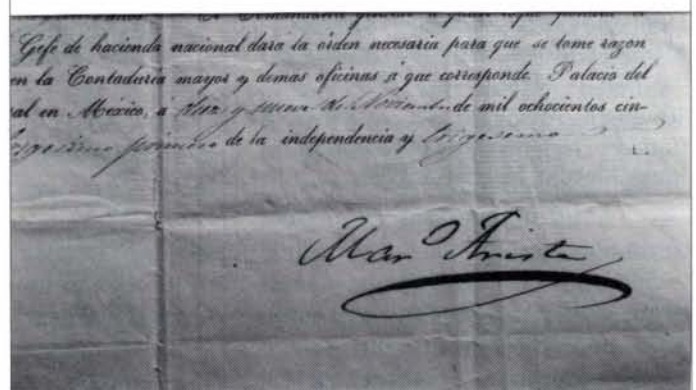 Comandante general
Gefe de hacienda nacional dará la órden necesaria para que se tome razon
en la Contaduría mayor y demas oficinas á que corresponde. Palacio del
al en México, á diez y nueve de Noviembre de mil ochocientos cin-
primero de la independencia y trigesimo
Mar.º Arista